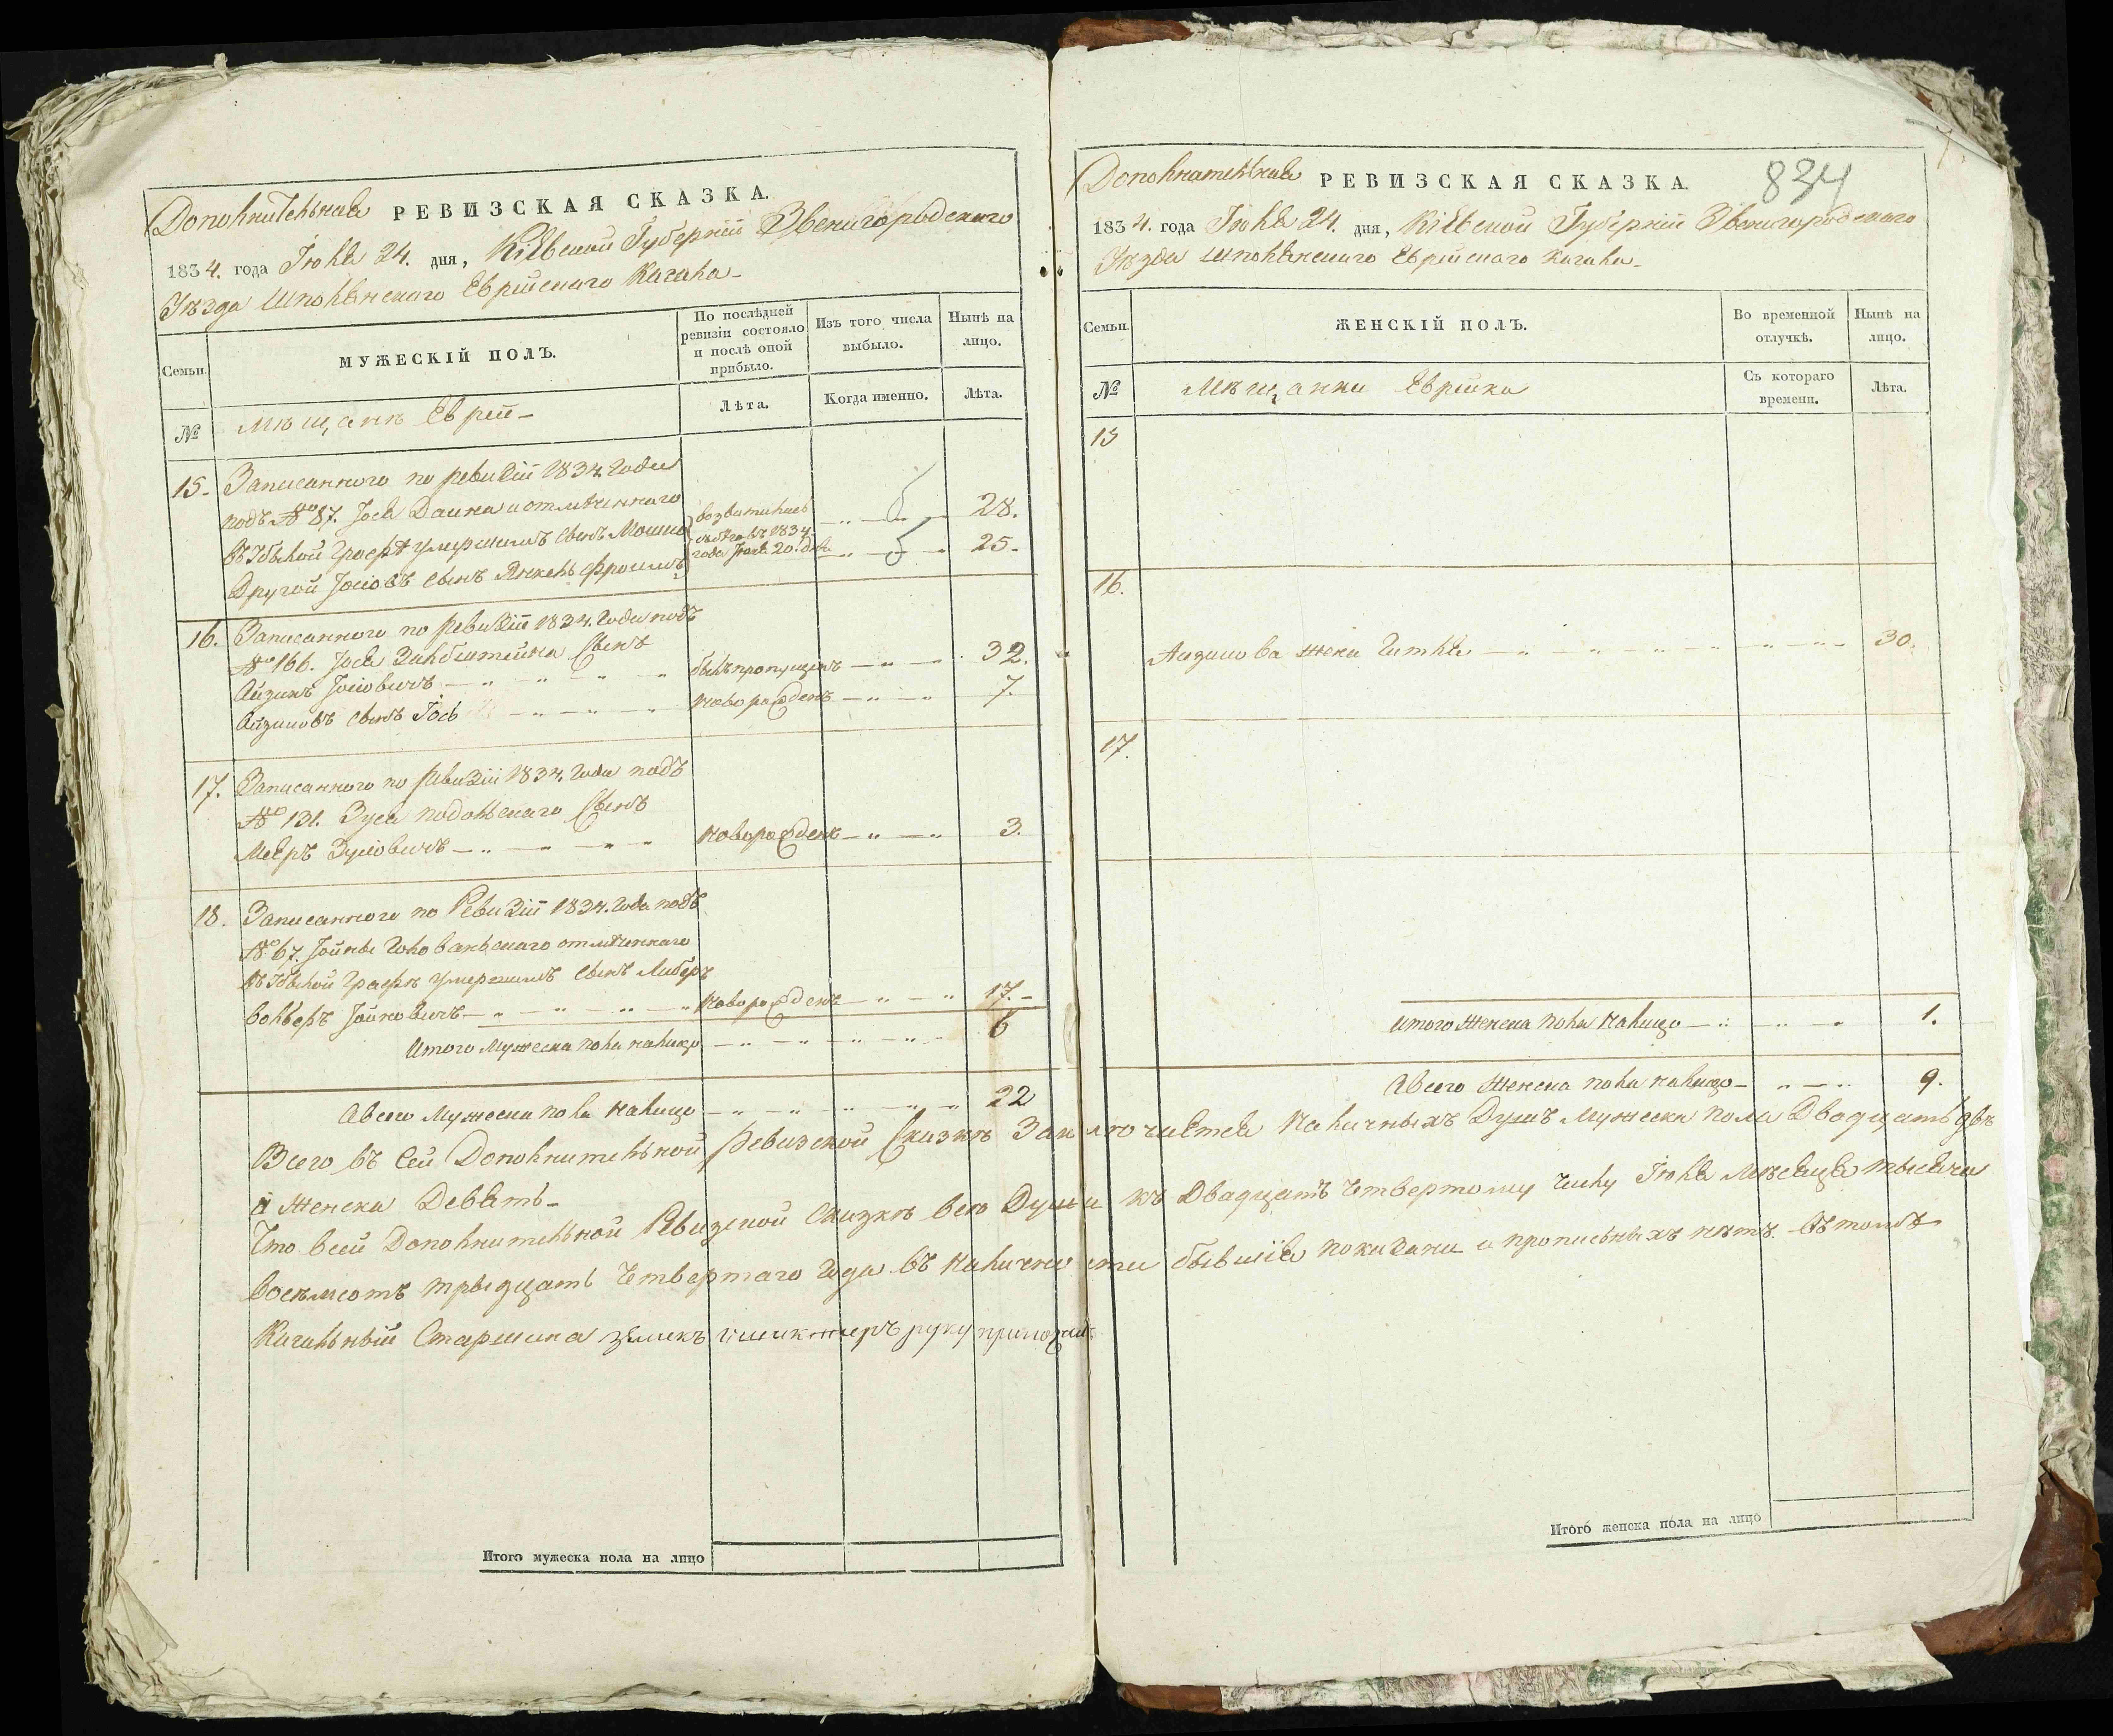 Дополнительная РЕВИЗСКАЯ СКАЗКА.
1834. года Іюля 24. дня, Кіевской Губерніи Звенигородскаго
Уѣзда Шполянскаго Еврейскаго Кагала
Семьи.
МУЖЕСКІЙ ПОЛЪ.
По послѣдней ревизіи состояло и послѣ оной прибыло.
Изъ того числа выбыло.
Нынѣ на лицо.
№
Мѣщанъ Еврей
Лѣта.
Когда именно.
Лѣта.
15. Записанного по ревизіи 1834. года
подъ № 87. Іося Даина и отмѣченного
въ 2 бѣлой графѣ умершимъ сынъ Мошко возвратились 28.
съ бѣговъ 1834
Другой Іосіовъ сынъ Янкель Фроимъ года Іюля 20. дня 25.
16. Записанного по ревизіи 1834. года подъ
№ 166. Іося Зильбштейна сынъ
Айзикъ Іосіовичъ былъ пропущенъ 32.
Айзиковъ сынъ Іось новорожденъ 7.
17. Записанного по ревизіи 1834. года подъ
№ 131. Зуся Подольскаго сынъ
Меєръ Зусіовичъ новорожденъ 3.
18. Записанного по Ревизіи 1834. года подъ
№ 67. Іойны Голованьскаго отмѣченного
умершимъ сынъ Либеръ
Вольберъ Іойновичъ новорожденъ 17.
Итого мужеска пола налицо 6
А всего мужеска пола налицо 22
Итого мужеска пола на лицо
Дополнительная РЕВИЗСКАЯ СКАЗКА. 834
1834. года Іюля 24. дня, Кіевской Губерніи Звенигородскаго
Уѣзда Шполянскаго Еврейскаго Кагала
Семьи.
ЖЕНСКІЙ ПОЛЪ.
Во временной отлучкѣ.
Нынѣ на лицо.
№
Мѣщанки Еврейки
Съ котораго времени.
Лѣта.
15
16.
Айзикова жена Гитля 30.
17.
Итого женска пола налицо 1.
А всего женска пола налицо 9.
Всего въ сей Дополнительной Ревизской Сказкѣ Заключается наличныхъ Душъ мужеска пола Двадцать двѣ
а женска Девять
Что всей Дополнительной Ревизской Сказкѣ всѣ Души къ Двадцать Четвертому числу Іюля мѣсяца тысяча
восемсотъ тридцать Четвертаго года въ наличности бывшія показани и прописныхъ нѣтъ. Въ томъ
Кагальный Старшина руку приложилъ
Итого женска пола на лицо